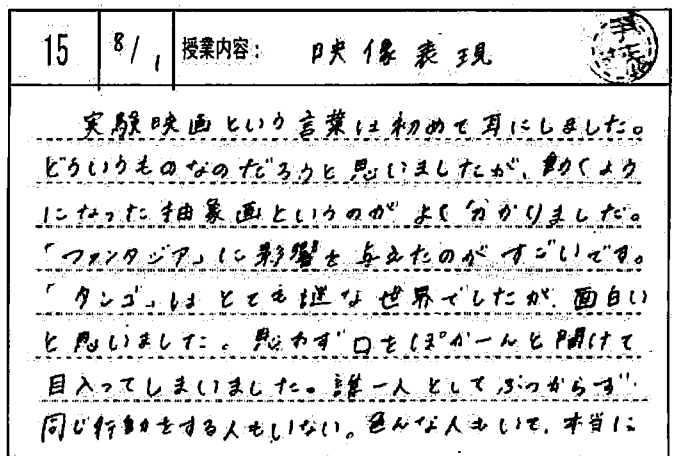 15 8/1 授業内容: 映像表現
実験映画という言葉は初めて耳にしました。
どういうものなのだろうと思いましたが、動くよう
になった抽象画というのがよく分かりました。
「ファンタジア」に影響を与えたのがすごいです。
「タンゴ」はとても謎な世界でしたが、面白い
と思いました。思わず口をぽかーんと開けて
見入ってしまいました。誰一人としてぶつからず
同じ行動をする人もいない。色んな人もいて、本当に